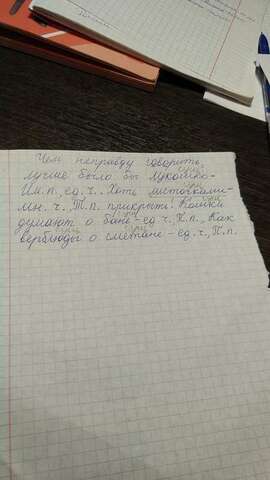 Чем неправду говорить,
лучше было бы лукошко-
Им.п., ед.ч.. Хоть листочками-
мн.ч., Т.п. прикрыть! Кошки
думают о бане-ед.ч., П.п., Как
верблюды о сметане-ед.ч., П.п.